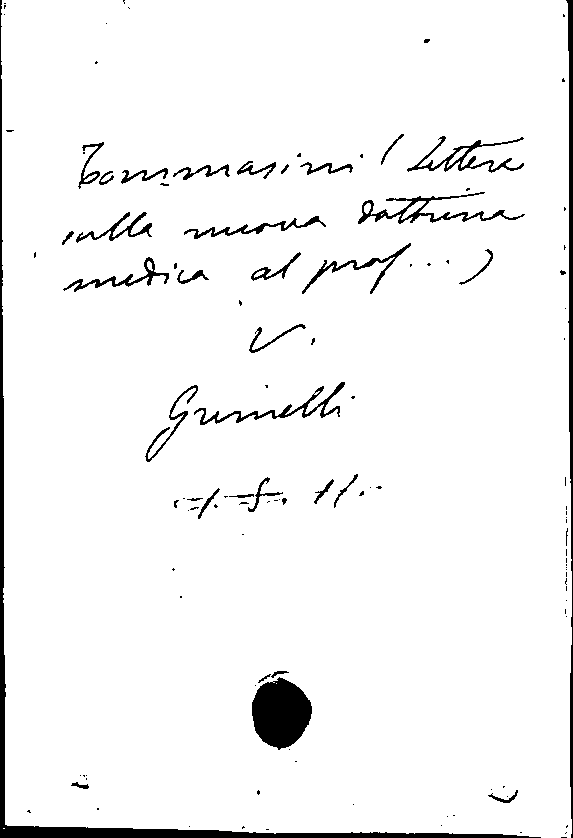 Tommasini (Lettera
sulla nuova dottrina
medica al prof...)
V.
Grimelli